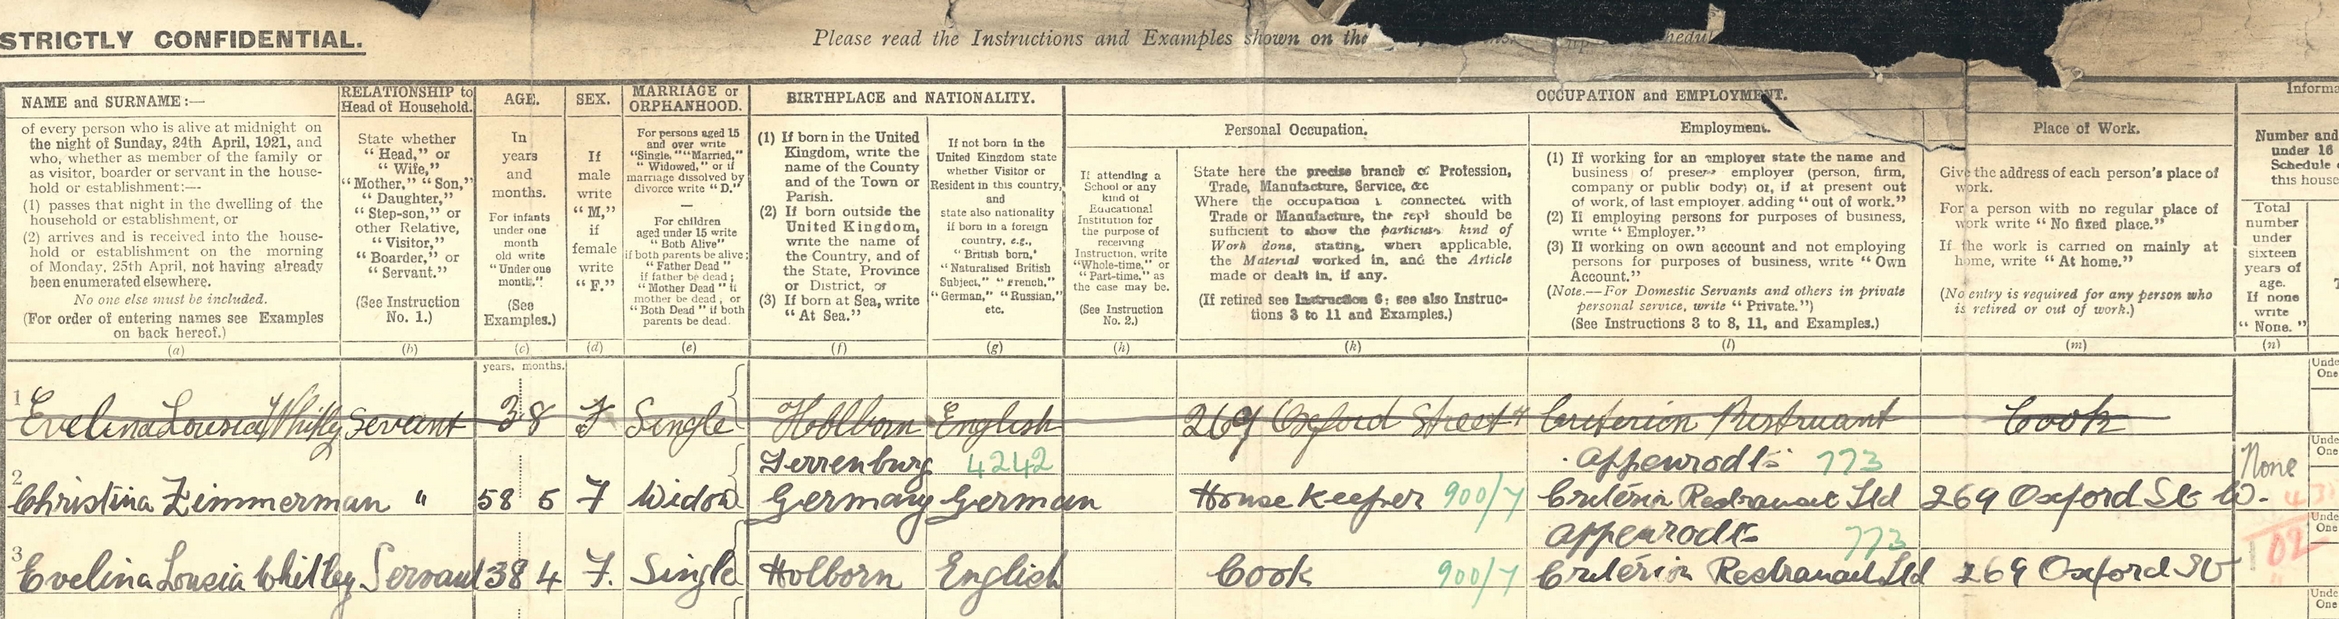 STRICTLY CONFIDENTIAL.
Please read the Instructions and Examples shown on the
NAME and SURNAME:—
of every person who is alive at midnight on
the night of Sunday, 24th April, 1921, and
who, whether as member of the family or
as visitor, boarder or servant in the house-
hold or establishment:—
(1) passes that night in the dwelling of the
household or establishment, or
(2) arrives and is received into the house-
hold or establishment on the morning
of Monday, 25th April, not having already
been enumerated elsewhere.
No one else must be included.
(For order of entering names see Examples
on back hereof.)
(a)
RELATIONSHIP to
Head of Household.
State whether
"Head," or
"Wife,"
"Mother," "Son,"
"Daughter,"
"Step-son," or
other Relative,
"Visitor,"
"Boarder," or
"Servant."
(See Instruction
No. 1.)
(b)
AGE.
In
years
and
months.
For infants
under one
month
old write
"Under one
month."
(See
Examples.)
(c)
SEX.
If
male
write
"M,"
if
female
write
"F."
(d)
MARRIAGE or
ORPHANHOOD.
For persons aged 15
and over write
"Single," "Married,"
"Widowed," or if
marriage dissolved by
divorce write "D."
—
For children
aged under 15 write
"Both Alive"
if both parents be alive;
"Father Dead"
if father be dead;
"Mother Dead" if
mother be dead, or
"Both Dead" if both
parents be dead.
(e)
BIRTHPLACE and NATIONALITY.
(1) If born in the United
Kingdom, write the
name of the County
and of the Town or
Parish.
(2) If born outside the
United Kingdom,
write the name of
the Country, and of
the State, Province
or District, or
(3) If born at Sea, write
"At Sea."
(f)
If not born in the
United Kingdom state
whether Visitor or
Resident in this country,
and
state also nationality
if born in a foreign
country, e.g.,
"British born,"
"Naturalised British
Subject," "French,"
"German," "Russian,"
etc.
(g)
OCCUPATION and EMPLOYMENT.
Personal Occupation.
If attending a
School or any
kind of
Educational
Institution for
the purpose of
receiving
Instruction, write
"Whole-time," or
"Part-time," as
the case may be.
(See Instruction
No. 2.)
(h)
State here the precise branch of Profession,
Trade, Manufacture, Service, &c
Where the occupation is connected with
Trade or Manufacture, the reply should be
sufficient to show the particular kind of
Work done, stating, when applicable,
the Material worked in, and the Article
made or dealt in, if any.
(If retired see Instruction 6; see also Instruc-
tions 3 to 11 and Examples.)
(k)
Employment.
(1) If working for an employer state the name and
business of present employer (person, firm,
company or public body) or, if at present out
of work, of last employer, adding "out of work."
(2) If employing persons for purposes of business,
write "Employer."
(3) If working on own account and not employing
persons for purposes of business, write "Own
Account."
(Note.—For Domestic Servants and others in private
personal service, write "Private.")
(See Instructions 3 to 8, 11, and Examples.)
(l)
Place of Work.
Give the address of each person's place of
work.
For a person with no regular place of
work write "No fixed place."
If the work is carried on mainly at
home, write "At home."
(No entry is required for any person who
is retired or out of work.)
(m)
Number and
under 16
Schedule
this house
Total
number
under
sixteen
years of
age.
If none
write
"None."
(n)
years. months.
1 Evelina Lousia Whitley Servant 38 F Single Holborn English 269 Oxford Street Criterion Restruant Cook
Terrenburg 4242 Appenrodts 773 None
2 Christina Zimmerman " 58 5 F Widow Germany German House Keeper 900/7 Critérin Restraunt Ltd 269 Oxford St W.
Appenrodts 773
3 Evelina Lousia Whitley Servant 38 4 F. Single Holborn English Cook 900/7 Critérion Restraunt Ltd 269 Oxford St W